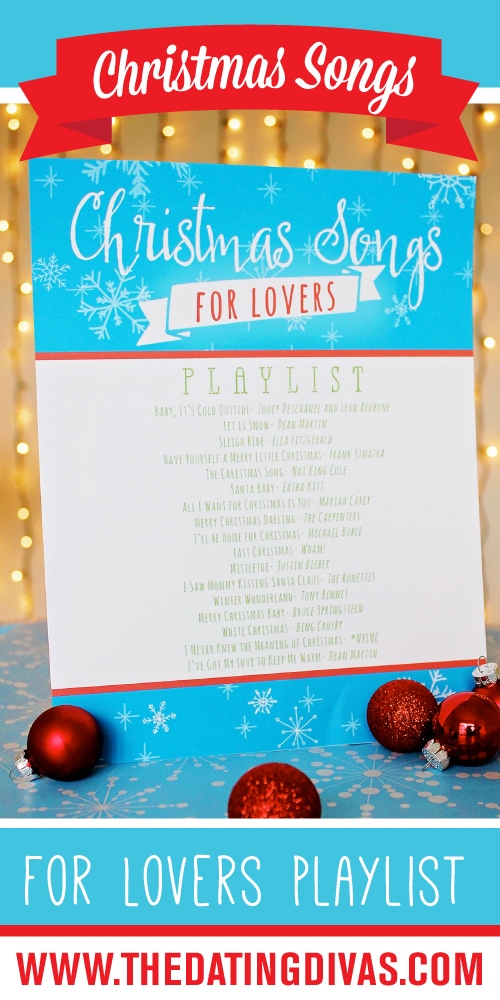 Christmas Songs
Christmas Songs
FOR LOVERS
PLAYLIST
BABY, IT'S COLD OUTSIDE- ZOOEY DESCHANEL AND LEON REDBONE
LET IT SNOW- DEAN MARTIN
SLEIGH RIDE- ELLA FITZGERALD
HAVE YOURSELF A MERRY LITTLE CHRISTMAS- FRANK SINATRA
THE CHRISTMAS SONG- NAT KING COLE
SANTA BABY- EATHA KITT
ALL I WANT FOR CHRISTMAS IS YOU- MARIAH CAREY
MERRY CHRISTMAS DARLING- THE CARPENTERS
I'LL BE HOME FOR CHRISTMAS- MICHAEL BUBLE
LAST CHRISTMAS- WHAM!
MISTLETOE- JUSTIN BIEBER
I SAW MOMMY KISSING SANTA CLAUS- THE RONETTES
WINTER WONDERLAND- TONY BENNET
MERRY CHRISTMAS BABY- BRUCE SPRINGSTEEN
WHITE CHRISTMAS- BING CROSBY
I NEVER KNEW THE MEANING OF CHRISTMAS- *NYSNC
I'VE GOT MY LOVE TO KEEP ME WARM- DEAN MARTIN
FOR LOVERS PLAYLIST
WWW.THEDATINGDIVAS.COM